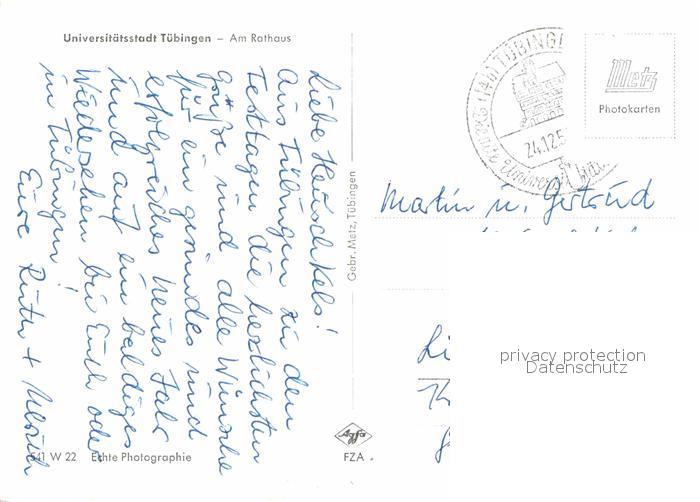 Universitätsstadt Tübingen – Am Rathaus
Liebe Heuschkels!
Aus Tübingen zu den
Festtagen die herzlichsten
Grüße und alle Wünsche
für ein gesundes und
erfolgreiches neues Jahr
und auf ein baldiges
Wiedersehen bei Euch oder
in Tübingen!
Eure Ruth + Ulrich
541 W 22 Echte Photographie
Gebr. Metz, Tübingen
Agfa
FZA .
(14b) TÜBINGE
24.12.5
Metz
Photokarten
Martin u. Gertrud
Li
privacy protection
Datenschutz